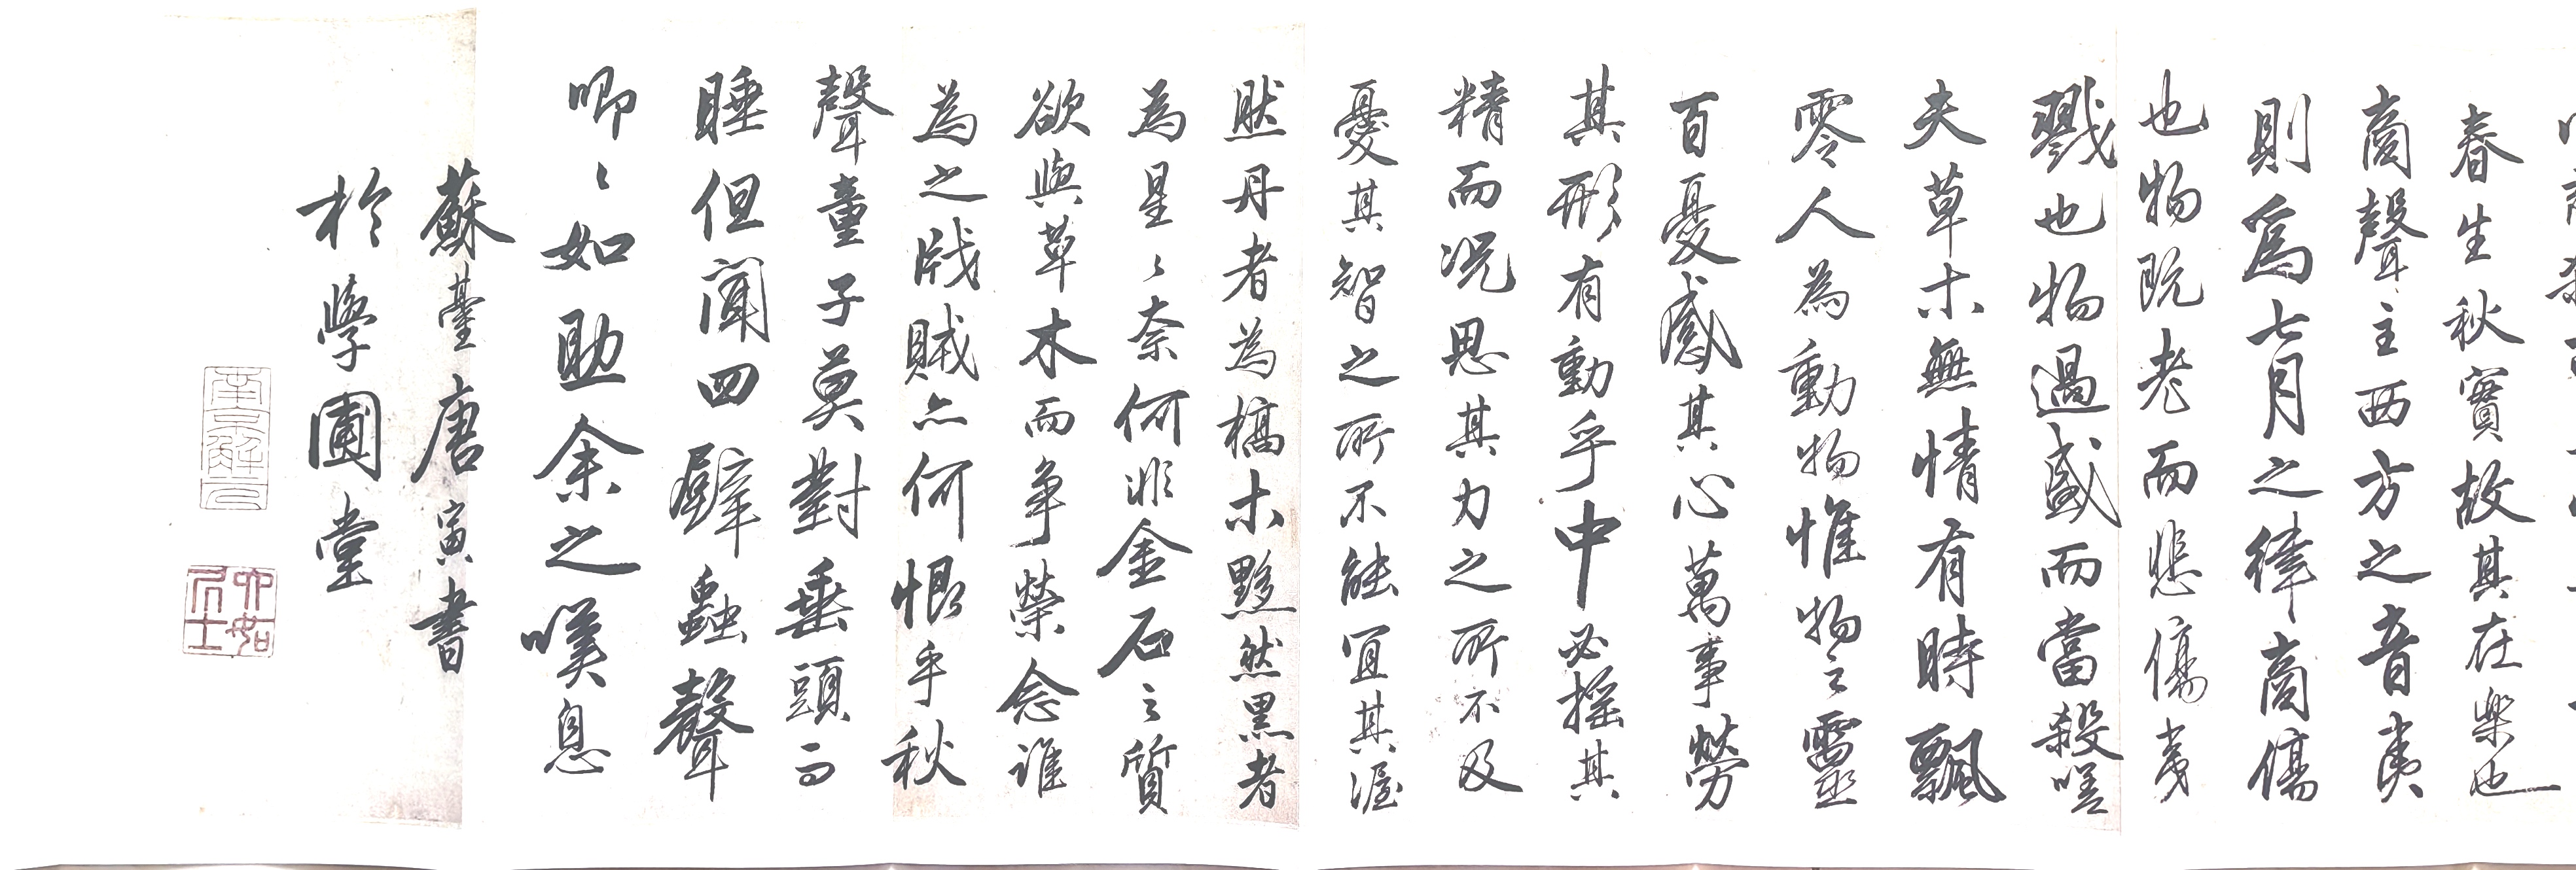 春生秋實故其在樂也
商聲主西方之音夷
則為七月之律商傷
也物既老而悲傷夷
戮也物過盛而當殺嗟
夫草木無情有時飄
零人為動物惟物之靈
百憂感其心萬事勞
其形有動乎中必搖其
精而況思其力之所不及
憂其智之所不能宜其渥
然丹者為槁木黟然黑者
為星星奈何非金石之質
欲與草木而爭榮念誰
為之戕賊亦何恨乎秋
聲童子莫對垂頭而
睡但聞四壁蟲聲
唧唧如助余之嘆息
蘇臺唐寅書
於學圃堂
南京解元
六如居士